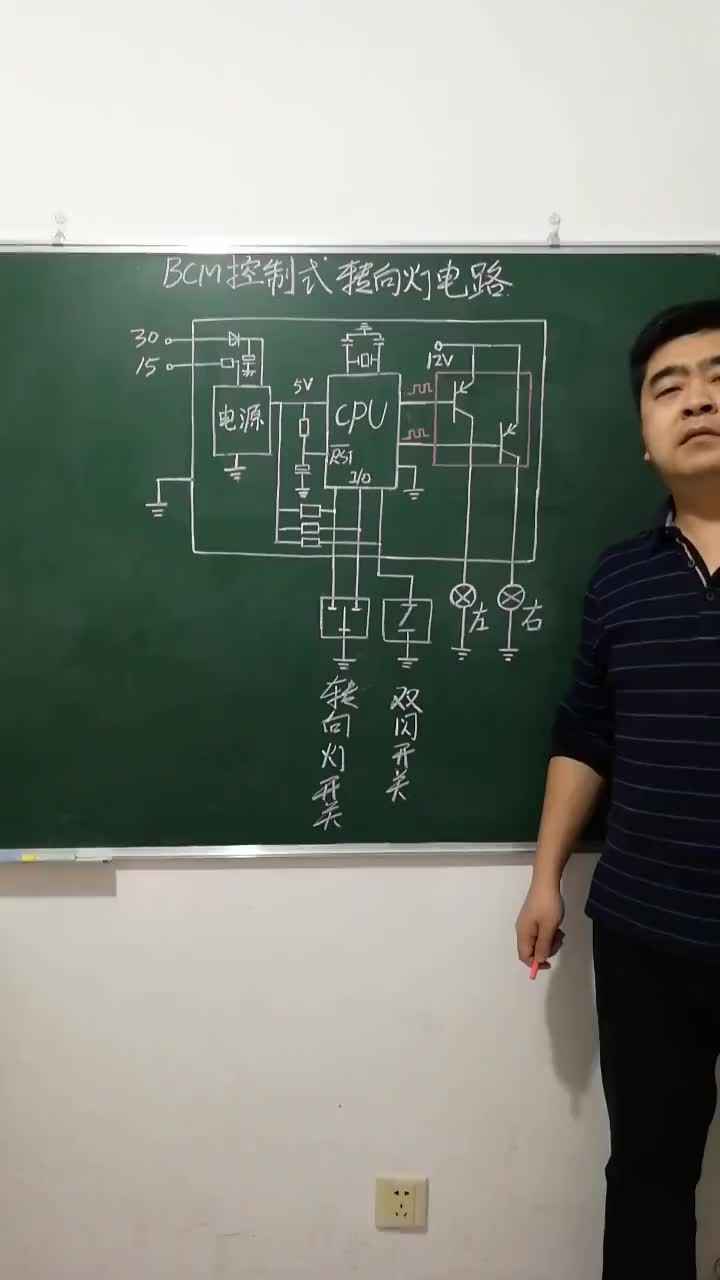 BCM控制式转向灯电路
30
15
5V
12V
电源
CPU
RST
I/O
左
右
转向灯开关
双闪开关